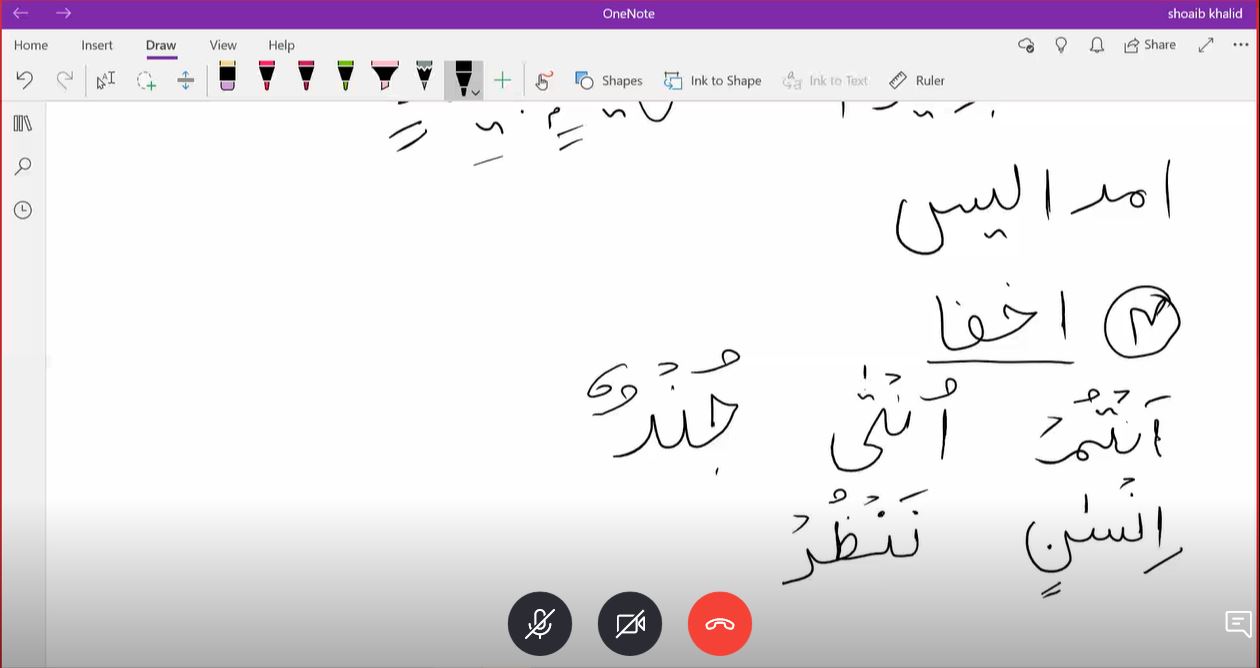 OneNote
shoaib khalid
Home Insert Draw View Help Share
Shapes Ink to Shape Ink to Text Ruler
امد الیس
۲ اخفا
اَنْتُمْ اُنْثٰی جُنْدٌ
اِنْسٰنٍ نَنْظُرْ